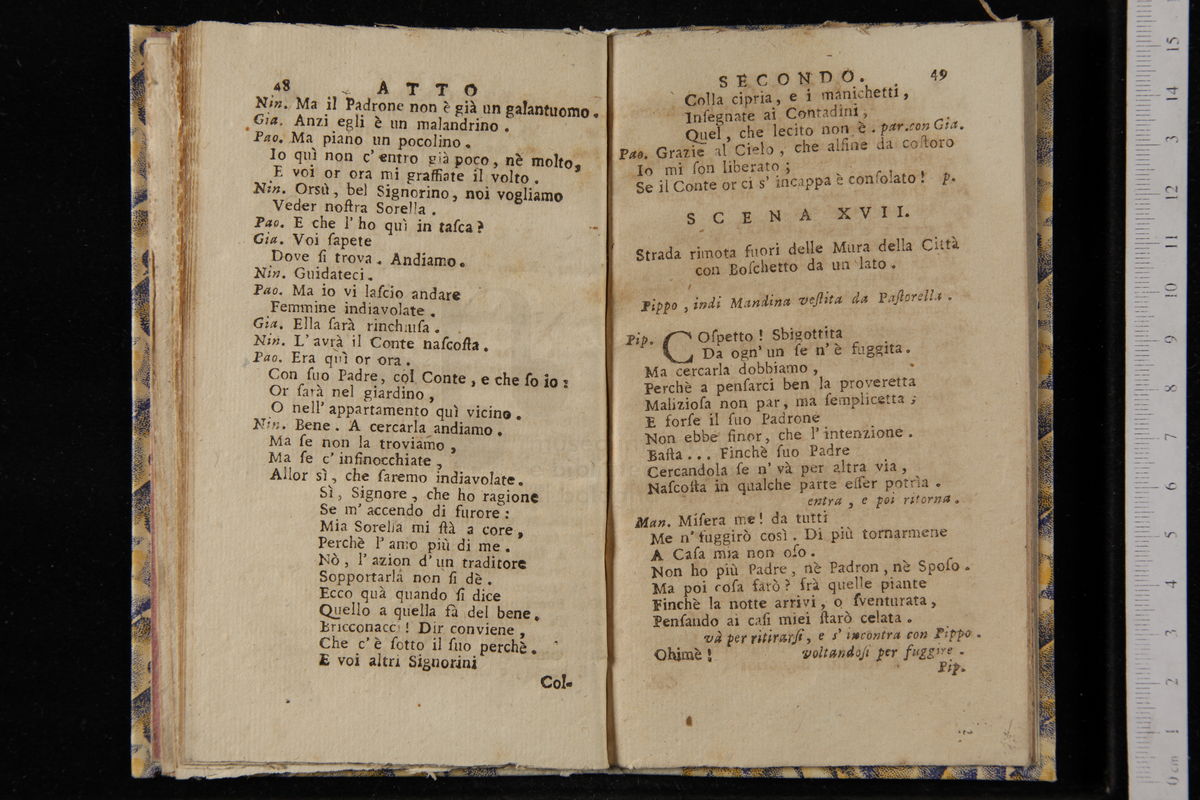 48 ATTO
Nin. Ma il Padrone non è già un galantuomo.
Gia. Anzi egli è un malandrino.
Pao. Ma piano un pocolino.
Io quì non c' entro già poco, nè molto,
E voi or ora mi graffiate il volto.
Nin. Orsù, bel Signorino, noi vogliamo
Veder noſtra Sorella.
Pao. E che l' ho quì in taſca?
Gia. Voi ſapete
Dove ſi trova. Andiamo.
Nin. Guidateci.
Pao. Ma io vi laſcio andare
Femmine indiavolate.
Gia. Ella ſarà rinchiuſa.
Nin. L' avrà il Conte naſcoſta.
Pao. Era quì or ora.
Con ſuo Padre, col Conte, e che ſo io:
Or ſarà nel giardino,
O nell' appartamento quì vicino.
Nin. Bene. A cercarla andiamo.
Ma ſe non la troviamo,
Ma ſe c' infinocchiate,
Allor sì, che ſaremo indiavolate.
Sì, Signore, che ho ragione
Se m' accendo di furore:
Mia Sorella mi ſtà a core,
Perchè l' amo più di me.
Nò, l' azion d' un traditore
Sopportarla non ſi dè.
Ecco quà quando ſi dice
Quello a quella fà del bene.
Bricconacci! Dir conviene,
Che c' è ſotto il ſuo perchè.
E voi altri Signorini
Col-
SECONDO. 49
Colla cipria, e i manichetti,
Inſegnate ai Contadini,
Quel, che lecito non è. par.con Gia.
Pao. Grazie al Cielo, che alfine da coſtoro
Io mi ſon liberato;
Se il Conte or ci s' incappa è conſolato! p.
SCENA XVII.
Strada rimota fuori delle Mura della Città
con Boſchetto da un lato.
Pippo, indi Mandina veſtita da Paſtorella.
Pip. COſpetto! Sbigottita
Da ogn' un ſe n' è fuggita.
Ma cercarla dobbiamo,
Perchè a penſarci ben la proveretta
Malizioſa non par, ma ſemplicetta;
E forſe il ſuo Padrone
Non ebbe finor, che l' intenzione.
Baſta... Finchè ſuo Padre
Cercandola ſe n' và per altra via,
Naſcoſta in qualche parte eſſer potrìa.
entra, e poi ritorna.
Man. Miſera me! da tutti
Me n' fuggirò così. Di più tornarmene
A Caſa mia non oſo.
Non ho più Padre, nè Padron, nè Spoſo.
Ma poi coſa farò? frà quelle piante
Finchè la notte arrivi, o ſventurata,
Penſando ai caſi miei ſtarò celata.
và per ritirarſi, e s' incontra con Pippo.
Ohimè! voltandoſi per fuggire.
Pip.
0 cm 1 2 3 4 5 6 7 8 9 10 11 12 13 14 15